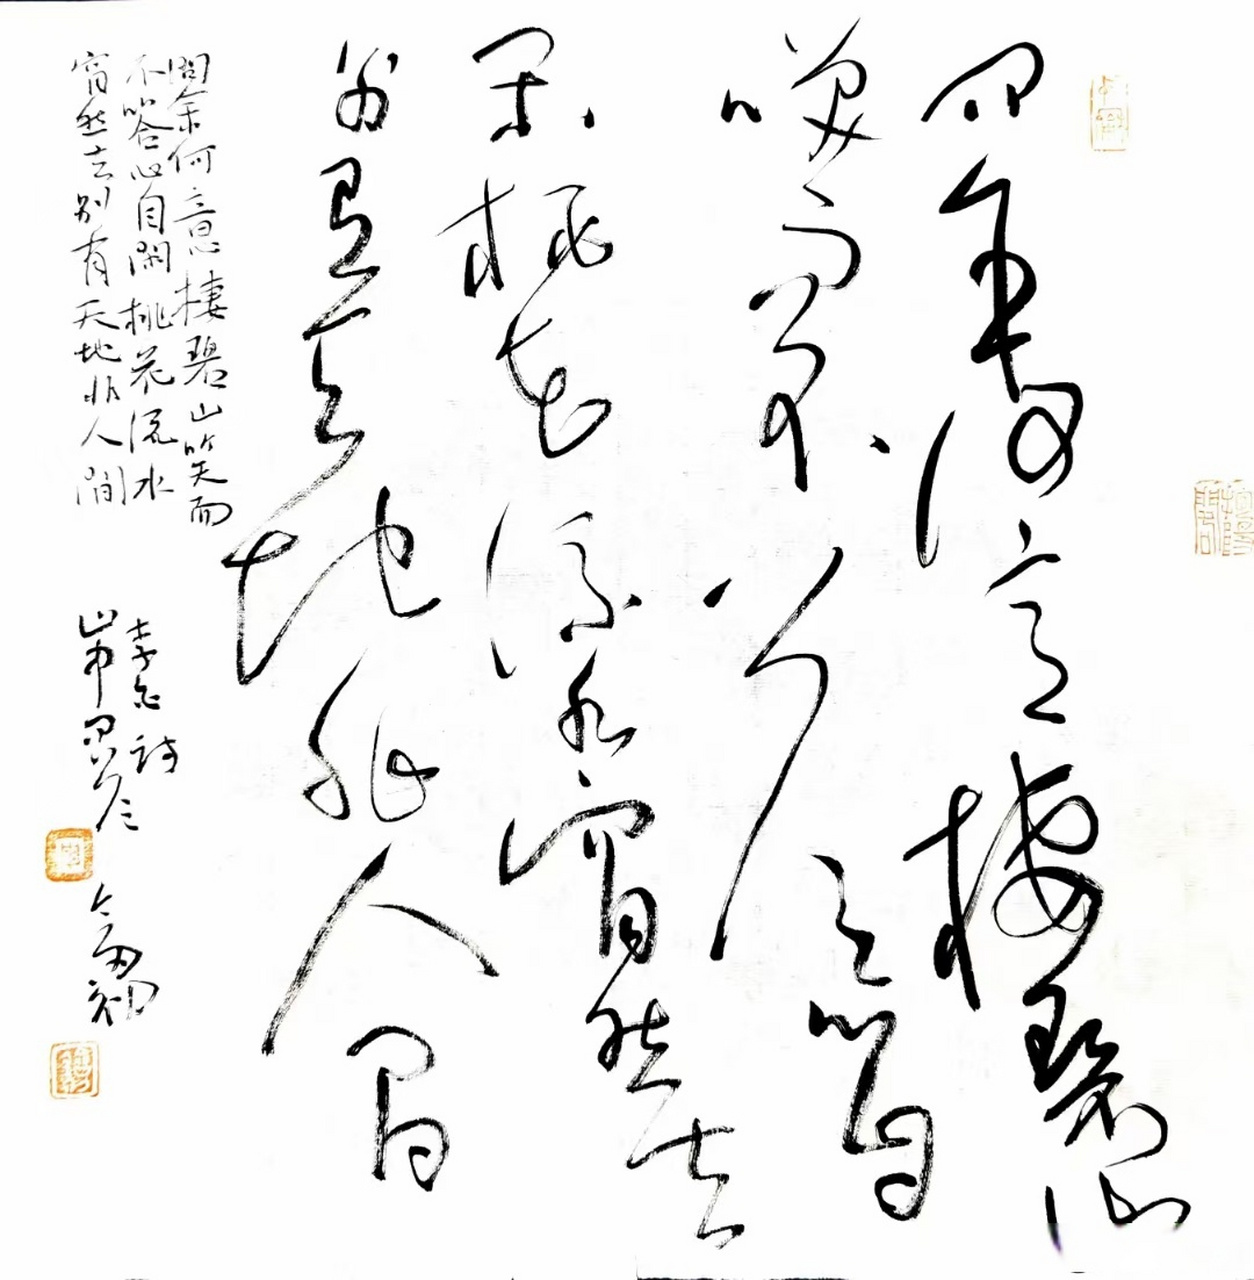 問余何意棲碧山
笑而不答心自
閑桃花流水窅然去
別有天地非人間
問余何意棲碧山笑而
不答心自閑桃花流水
窅然去別有天地非人間
李白詩